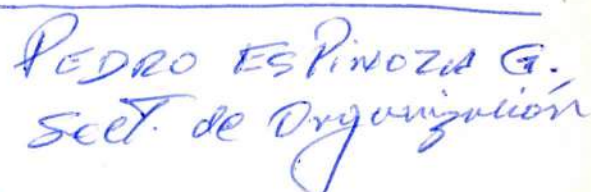 PEDRO ESPINOZA G.
Sect. de Organización